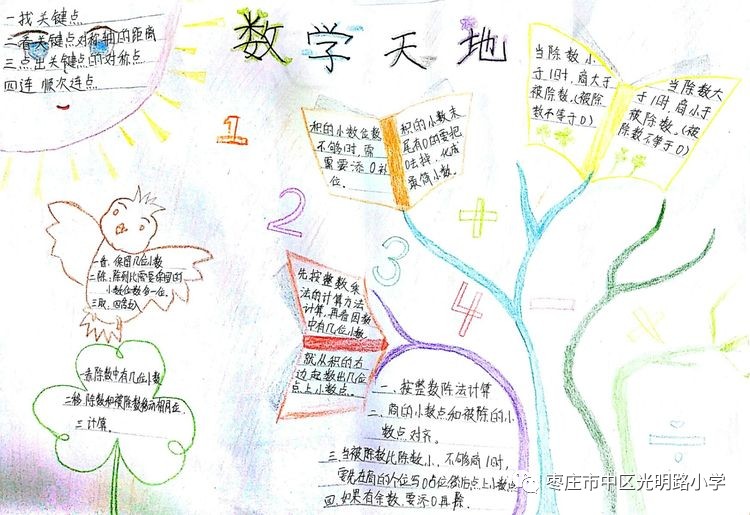 数学天地
一找关键点
二看关键点对称轴的距离
三点出关键点的对称点
四连 顺次连点
1
积的小数位数
不够时,需
要添0补
位.
积的小数末
尾有0的要把
0去掉,化成
最简小数.
当除数小
于1时,商大于
被除数.(被除
数不等于0)
当除数大
于1时,商小于
被除数.(被
除数不等于0)
2
3
4
+
−
×
÷
一看:保留几位小数
二除:除到比需要保留的
小数位数多一位.
三取:四舍五入
先按整数乘
法的计算方法
计算,再看因数
中有几位小数,
就从积的右
边起数出几位
点上小数点.
一看除数中有几位小数
二移.除数和被除数移动相同位.
三计算.
一、按整数除法计算
二、商的小数点和被除的小
数点对齐.
三.当被除数比除数小,不够商1时,
要先在商的个位写0占位然后点上小数点
四.如果有余数,要添0再除.
枣庄市中区光明路小学